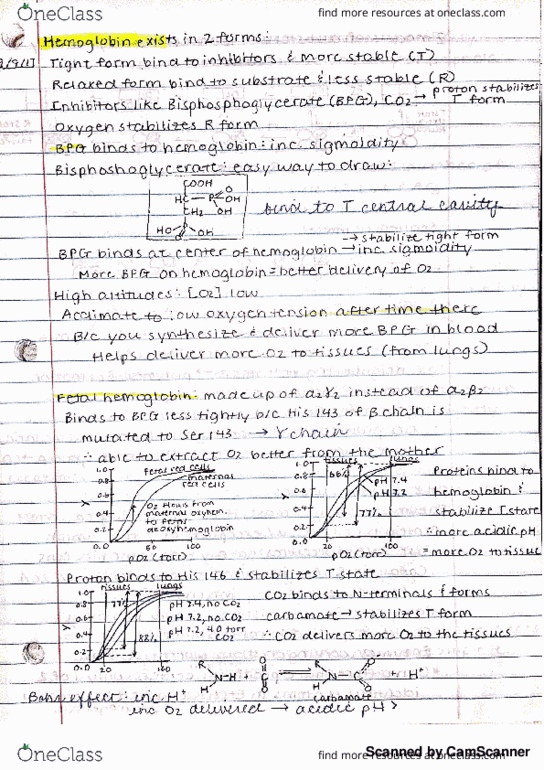 OneClass
find more resources at oneclass.com
Hemoglobin exists in 2 forms:
Tight form bind to inhibitors & more stable (T)
Relaxed form bind to substrate & less stable (R)
Inhibitors like Bisphosphoglycerate (BPG), CO2 → proton stabilizes T form
Oxygen stabilizes R form
BPG binds to hemoglobin: inc. sigmoidity
Bisphoshoglycerate: easy way to draw:
COOH
HC
P
O
OH
CH2
OH
HO
P
OH
bind to T central cavity
→ stabilize tight form
BPG binds at center of hemoglobin → inc. sigmoidity
More BPG on hemoglobin = better delivery of O2
High altitudes: [O2] low
Acclimate to low oxygen tension after time there
B/c you synthesize & deliver more BPG in blood
Helps deliver more O2 to tissues (from lungs)
Fetal hemoglobin: made up of α2γ2 instead of α2β2
Binds to BPG less tightly b/c His 143 of β chain is
mutated to Ser 143 → γ chain
∴ able to extract O2 better from the mother
1.0
0.8
0.6
0.4
0.2
0.0
Y
Fetal red cells
maternal red cells
O2 flows from
maternal oxyhem.
to fetal
deoxyhemoglobin
50
100
pO2 (torr)
tissues
lungs
1.0
0.8
0.6
0.4
0.2
0.0
Y
66%
77%
pH 7.4
pH 7.2
20
100
pO2 (torr)
Proteins bind to
hemoglobin &
stabilize T state
∴ more acidic pH
= more O2 to tissue
Proton binds to His 146 & stabilizes T state
tissues
lungs
1.0
0.8
0.6
0.4
0.2
0.0
Y
77%
88%
pH 7.4, no CO2
pH 7.2, no CO2
pH 7.2, 40 torr CO2
20
100
CO2 binds to N-terminals & forms
carbamate → stabilizes T form
∴ CO2 delivers more O2 to the tissues
R
N-H
H
+
O
C
O
R
N-C
H
O
O
+ H+
carbamate
Bohr effect: inc H+
inc O2 delivered → acidic pH >
Scanned by CamScanner
OneClass
find more resources at oneclass.com